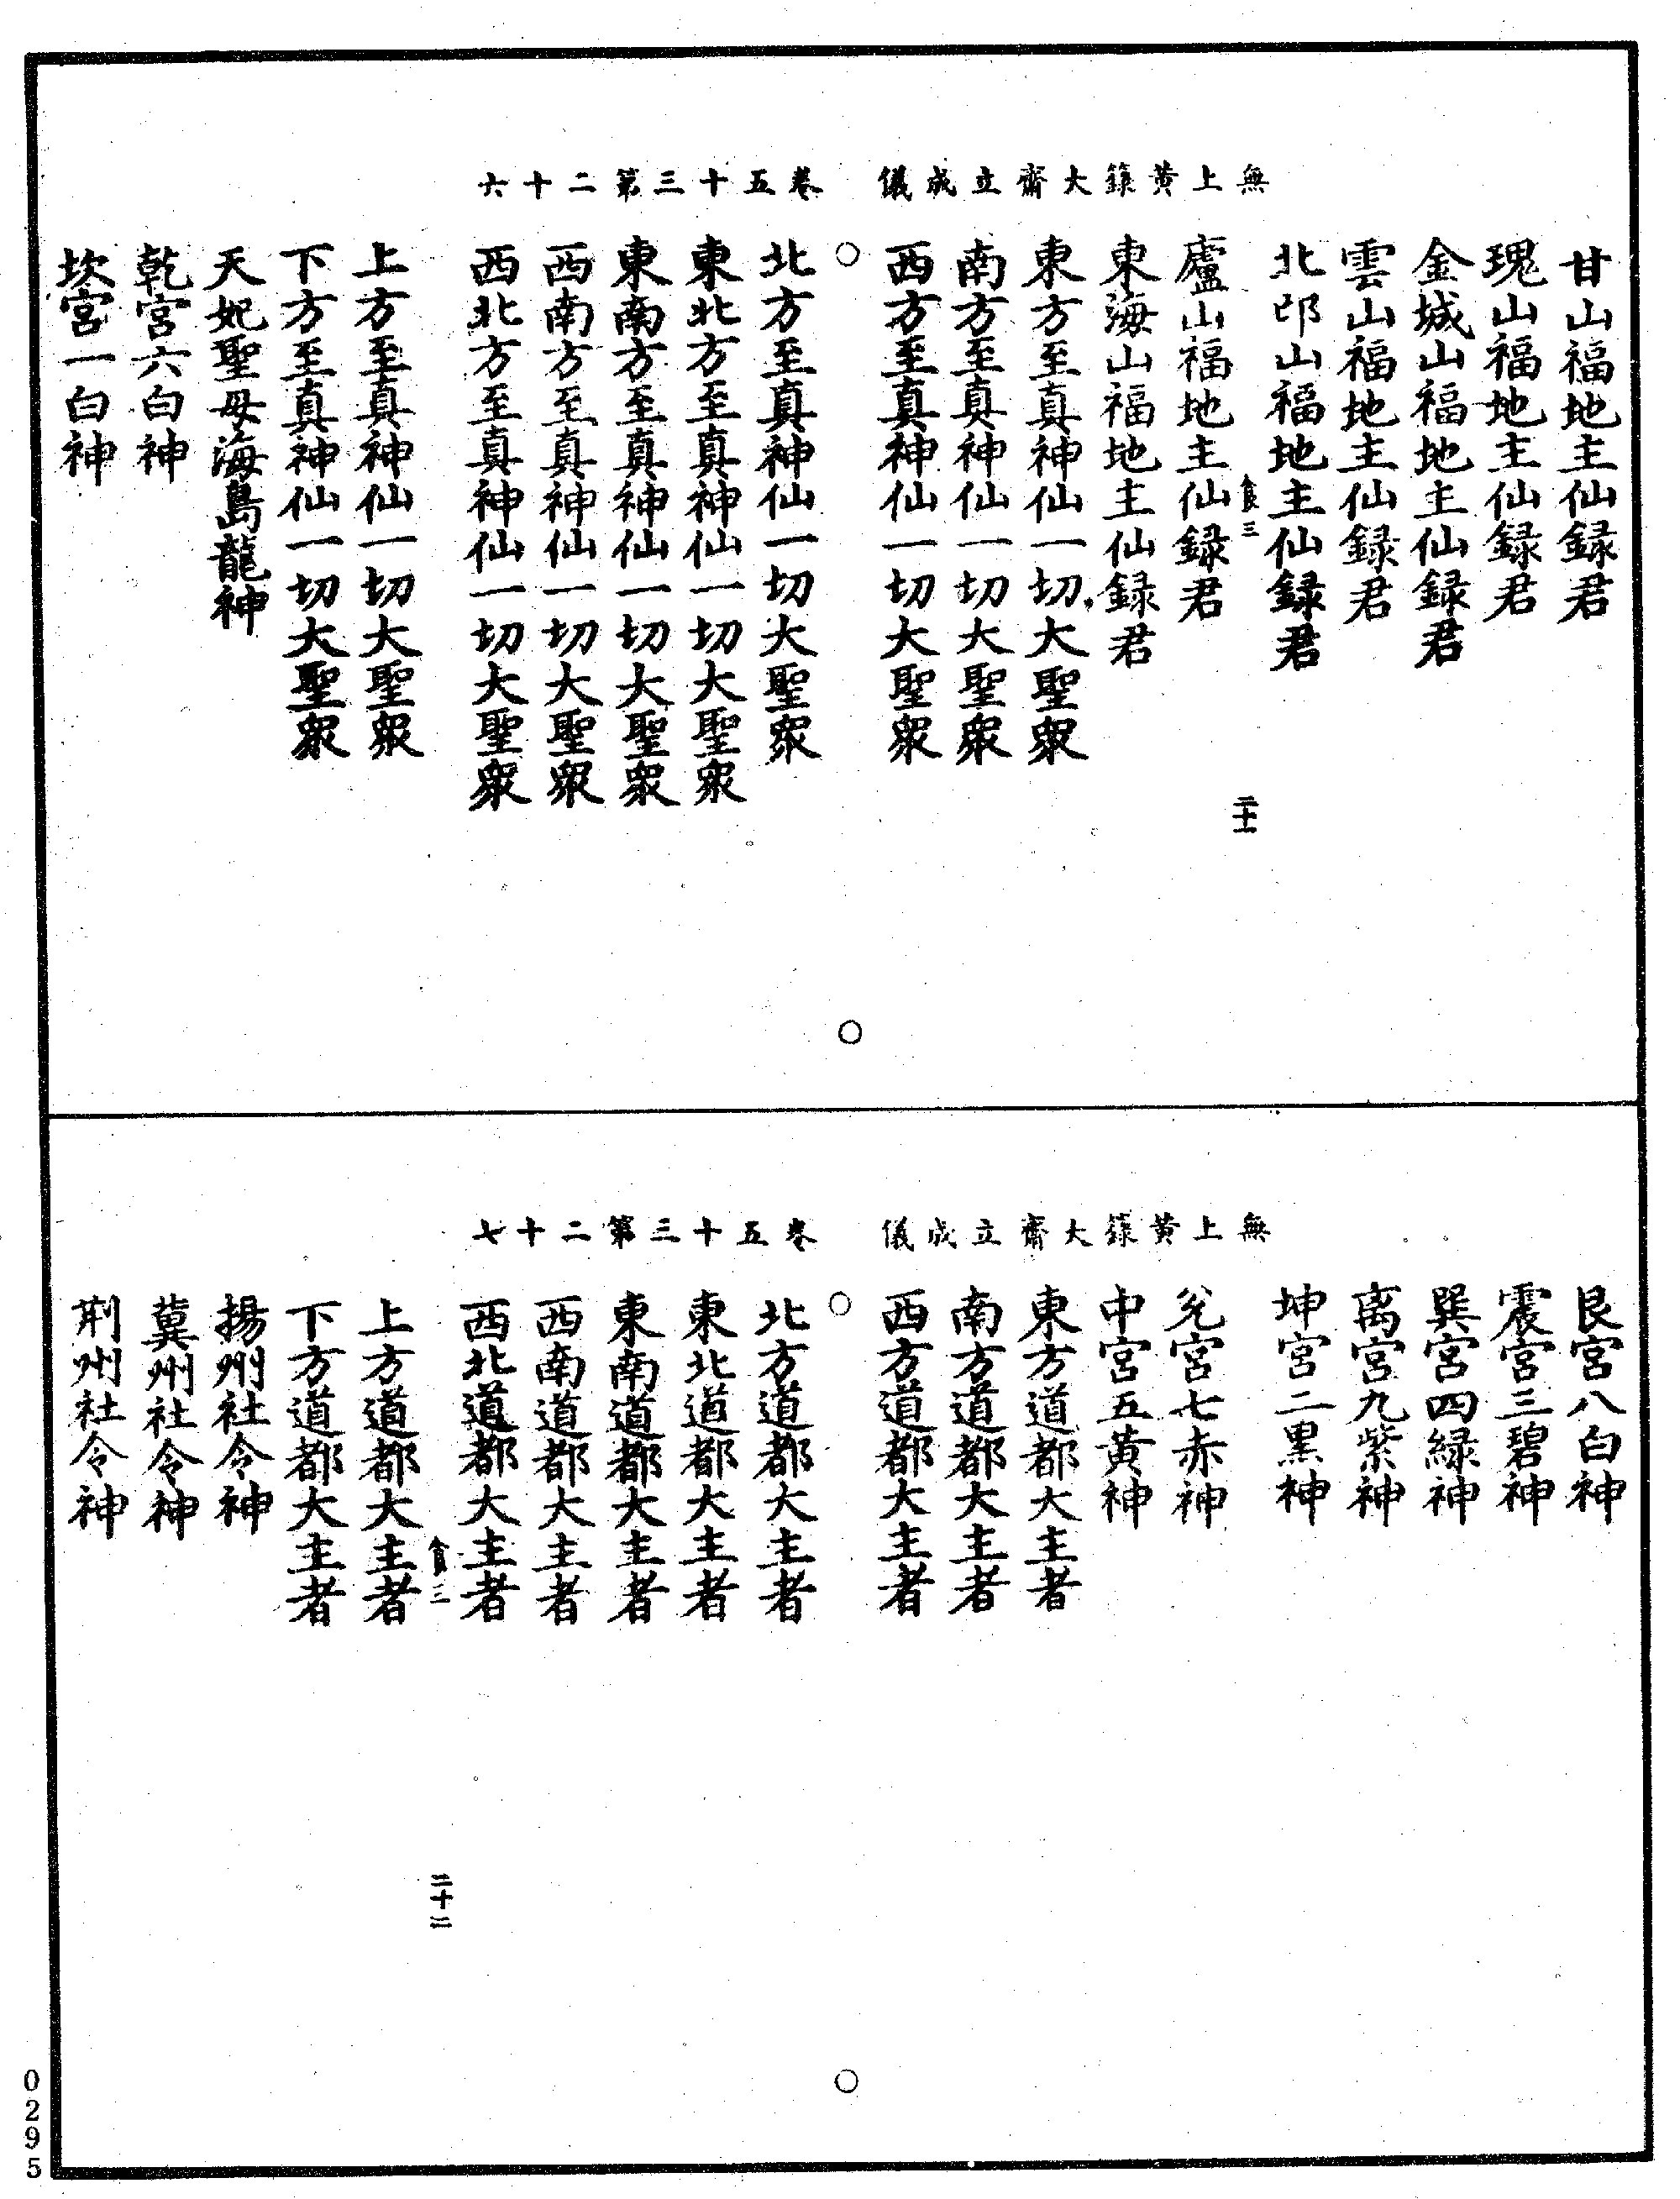 無上黃籙大齋立成儀 卷五十三第二十六
甘山福地主仙録君
瑰山福地主仙録君
金城山福地主仙録君
雲山福地主仙録君
北邙山福地主仙録君
食三 二十一
廬山福地主仙録君
東海山福地主仙録君
東方至真神仙一切大聖衆
南方至真神仙一切大聖衆
西方至真神仙一切大聖衆
北方至真神仙一切大聖衆
東北方至真神仙一切大聖衆
東南方至真神仙一切大聖衆
西南方至真神仙一切大聖衆
西北方至真神仙一切大聖衆
上方至真神仙一切大聖衆
下方至真神仙一切大聖衆
天妃聖母海島龍神
乾宮六白神
坎宮一白神
無上黃籙大齋立成儀 卷五十三第二十七
艮宮八白神
震宮三碧神
巽宮四緑神
离宮九紫神
坤宮二黒神
兊宮七赤神
中宮五黄神
東方道都大主者
南方道都大主者
西方道都大主者
北方道都大主者
東北道都大主者
東南道都大主者
西南道都大主者
西北道都大主者
食三 二十二
上方道都大主者
下方道都大主者
揚州社令神
冀州社令神
荆州社令神
0295